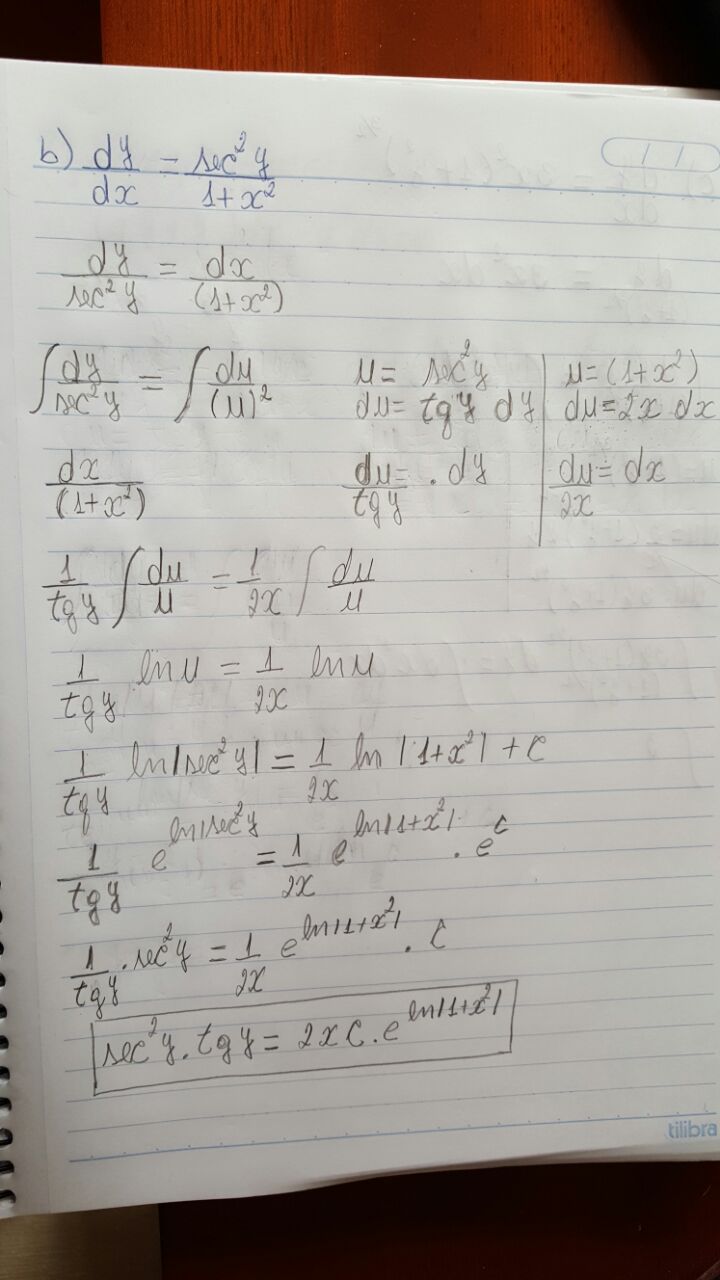 b) dy/dx = sec²y/1+x²
dy/sec²y = dx/(1+x²)
∫ dy/sec²y = ∫ du/(u)² u = sec²y | u = (1+x²)
du = tg y dy | du = 2x dx
dx/(1+x²) du/tg y = . dy | du/2x = dx
1/tg y ∫ du/u = 1/2x ∫ du/u
1/tg y ln u = 1/2x ln u
1/tg y ln|sec²y| = 1/2x ln |1+x²| + c
1/tg y e^ln|sec²y = 1/2x e^ln|1+x²| . e^c
1/tg y . sec²y = 1/2x e^ln|1+x²| . c
sec²y . tg y = 2x c . e^ln|1+x²|
tilibra